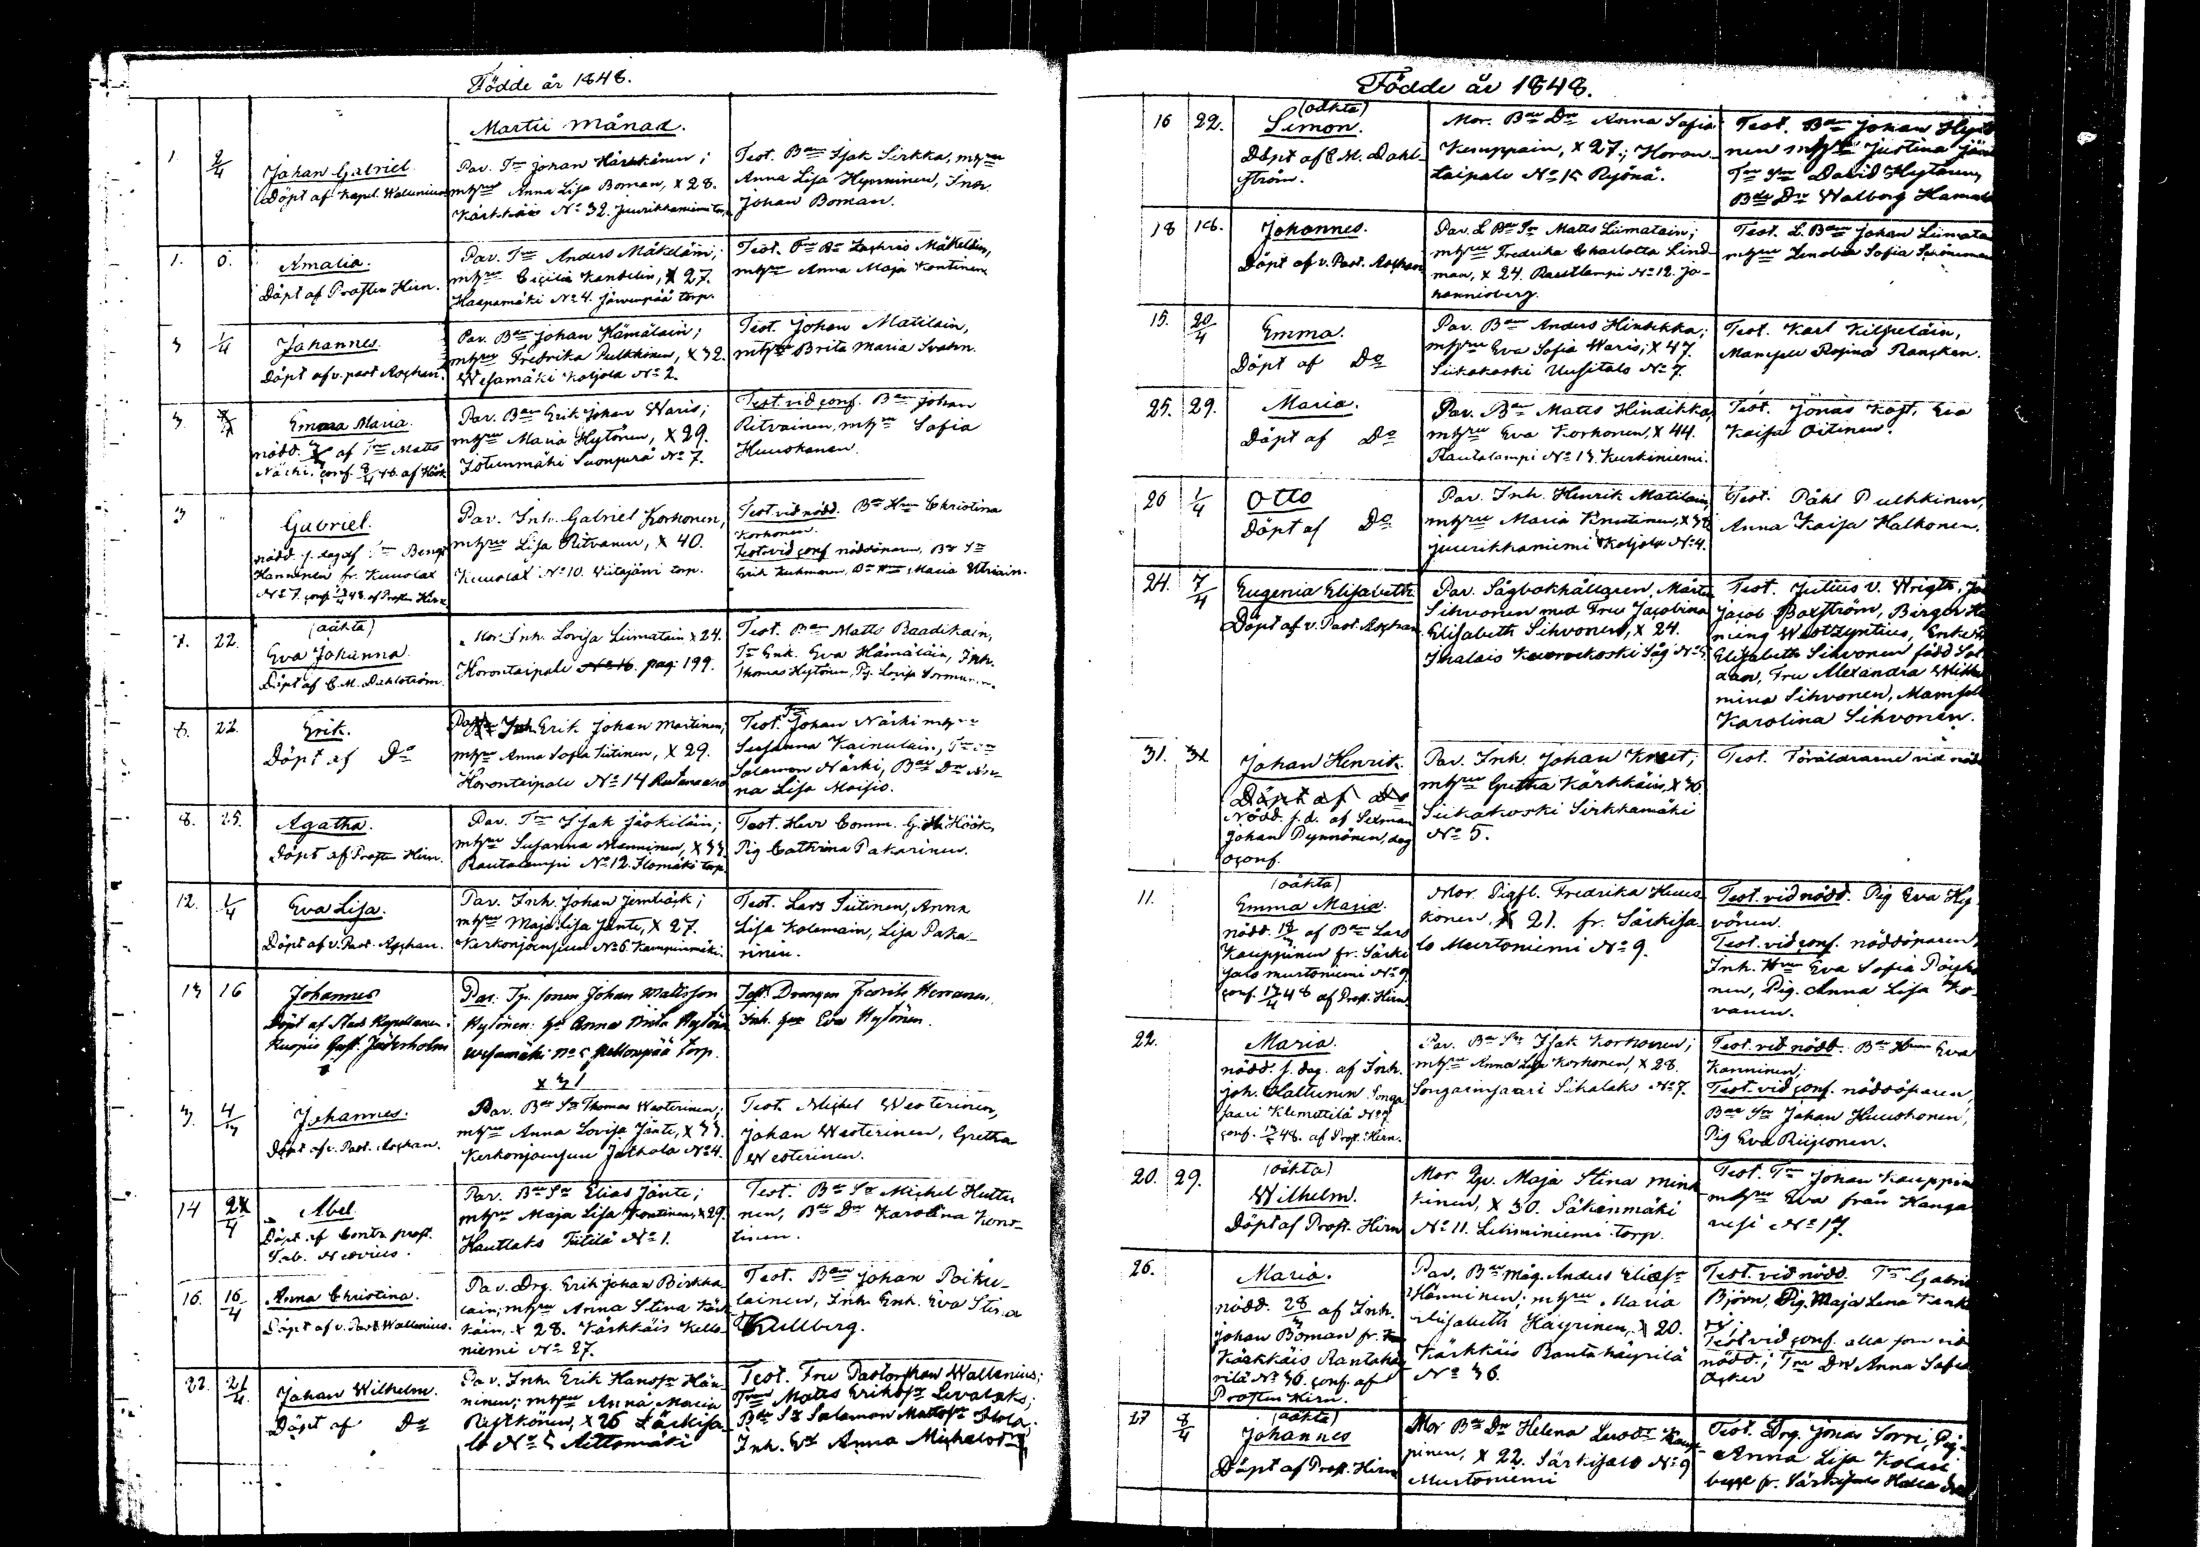 Födde år 1848.
Martii månad.
1. 2/4 Johan Gabriel.
Döpt af Kapel. Wallenius
Par. Tr Johan Kärkkäinen;
mhru Anna Lisa Boman, x 28.
Kärkkäis No 32. Juurikkaniemi torp.
Test. Bn Isak Sirkka, mhru
Anna Lisa Hyvninen, Inh.
Johan Boman.
1. 5. Amalia.
Döpt af Prosten Hirn.
Par. Tr Anders Mäkeläin;
mhru Cicilia Kandelin, x 27.
Haapamäki No 4. Järvenpää torp.
Test. Zachris Mäkeläin,
mhru Anna Maja Kontinen
3 1/4 Johannes.
Döpt af v. past. Aschan.
Par. Bn Johan Hämäläin;
mhru Fredrika Pulkkinen, x 32.
Wesamäki Koljola No 2.
Test. Johan Matilain,
mhru Brita Maria Svahn.
3. Emma Maria.
nödd. af Matts
Närhi. conf. 8/4 48. af Höök
Par. Bn Erik Johan Waris;
mhru Maria Hytönen, x 29.
Istunmäki Suonperä No 7.
Test. vid conf. Bn Johan
Ritvainen, mhru Sofia
Huuskonen.
3 Gabriel.
nödd. s. dag af Bengt
Hanninen fr. Kuuslax
No 7. conf. 48. af Prosten Hirn
Par. Inh. Gabriel Korhonen,
mhru Lisa Ritvanen, x 40.
Kuuslax No 10. Viitajärvi torp.
Test vid nödd. Bn Hru Christina
Korhonen.
Test vid conf. nöddöparen, Bn Sn
Erik Kuhmonen, Maria Utriain.
7. 22. (oäkta)
Eva Johanna.
Döpt af C. M. Dahlström.
Mor. Inh. Lovisa Liimatain x 24.
Horontaipale No 16. pag. 199.
Test. Bn Matts Raadikain,
Enk. Eva Hämäläin, Inh.
Thomas Hytönen, Pg. Lovisa
8. 22. Erik.
Döpt af Do
Par. Inh. Erik Johan Martinen;
mhru Anna Sofia Tiitinen, x 29.
Horontaipale No 14
Test. Johan Närhi mhru
Susanna Kainulain,
Salamon Närhi, Bn Dr An-
na Lisa Moisio.
8. 25. Agatha.
Döpt af Prosten Hirn.
Par. Tr Isak Jäskeläin;
mhru Susanna Manninen, x 33.
Rautalampi No 12. Ilomäki torp.
Test. Herr Comm. G. Höök,
Pig Cathrina Pakarinen.
12. 1/4 Eva Lisa.
Döpt af v. Past. Aschan.
Par. Inh. Johan Jernbäck;
mhru Maja Lisa Jänte, x 27.
Kerkonjoensuu No 6 Kampinmäki.
Test. Lars Tiitinen, Anna
Lisa Kolemain, Lisa Paka-
rinen.
13 16 Johannes
Döpt af Stads Kapellanen i
Kuopio Gust. Jäderholm
Par. Tp. sonen Johan Mattsson
Hytönen: hu Anna Brita Hytönen
Wesamäki No 5 Kellonpää Torp.
x 31
Test. Drengen Fredrik Herranen,
Inh. hu Eva Hytönen.
3. Johannes.
Döpt af v. Past. Aschan.
Par. Bn Sn Thomas Westerinen;
mhru Anna Lovisa Jänte, x 33.
Kerkonjoensuu Jathola No 4.
Test. Michel Westerinen,
Johan Westerinen, Gretha
Westerinen.
14 Abel
Döpt af Contr. prost.
Fab. Neovius.
Par. Bn Sn Elias Jänte;
mhru Maja Lisa Kontinen, x 29.
Hautlaks Tiitilä No 1.
Test. Bn Sn Michel Huttu
nen, Bn Dr Karolina Kont-
tinen.
16. 16/4 Anna Christina.
Döpt af v. Past. Wallenius.
Par. Drg. Erik Johan Pirkka
lain; mhru Anna Stina Kärk
käin, x 28. Kärkkäis Kello-
niemi No 27.
Test. Bn Johan Poiku-
lainen, Inh. Enk. Eva Stina
Kullberg.
22. 21/4. Johan Wilhelm.
Döpt af Do
Par. Inh. Erik Hansson Hän-
ninen; mhru Anna Maria
Reskonen, x 26 Särkisa-
lo No 5 Aittomäki
Test. Fru Pastorskan Wallenius;
Matts Eriksson Levalaks;
Bn Sn Salamon Mattsson Ahola;
Inh. Anna Michelsdr
Födde år 1848.
16 22. (oäkta)
Simon.
Döpt af C. M. Dahl-
ström.
Mor. Bn Dr Anna Sofia
Kauppain, x 27.; Horon-
taipale No 15 Ryönä.
Test. Bn Johan Hytö
nen mhru Justina
David Hytönen,
Bn Dr Walborg
18 18. Johannes.
Döpt af v. Past. Aschan
Par. L. Bn Sn Matts Liimatain;
mhru Fredrika Charlotta Lind-
man, x 24. Rautlampi No 12. Jo-
hannisberg.
Test. L. Bn Johan Liimata
mhru Lenovia Sofia
15. 20/4 Emma.
Döpt af Do
Par. Bn Anders Hintikka;
mhru Eva Sofia Waris; x 47.
Siikakoski Uusitalo No 7.
Test. Karl Kilpeläin,
Mamsell Rosina Rancken.
25. 29. Maria.
Döpt af Do
Par. Bn Matts Hindikka,
mhru Eva Korhonen, x 44.
Rautalampi No 13. Kurkiniemi.
Test. Jonas Kost, Eva
Kaisa Oitinen.
26 1/4 Otto
Döpt af Do
Par. Inh. Henrik Matilain,
mhru Maria Knuutinen, x 38
Juurikkaniemi Koljola No 4.
Test. Påhl Pulkkinen,
Anna Kaisa Halkonen.
24. 7/4 Eugenia Elisabeth
Döpt af v. Past. Aschan
Par. Sågbokhållaren, Mårten
Sihvonen med Fru Jacobina
Elisabeth Sihvonen, x 24.
Ihalais Såg No 5
Test. Julius v. Wright,
Jacob Boxström, Birger
ning Westzyntius,
Elisabeth Sihvonen född
dan, Fru Alexandra Wilhel
mina Sihvonen, Mamsell
Karolina Sihvonen.
31. 31 Johan Henrik
Döpt af do
Nödd. s. d. af Sexman
Johan Pynnönen, dag
oconf.
Par. Inh. Johan Knut;
mhru Gretha Kärkkäin, x 36.
Siikakoski Sirkkamäki
No 5.
Test. Föräldrarne vid nödd
11. (oäkta)
Emma Maria.
nödd. af Bn Lars
Kauppinen fr. Särki
salo Murtoniemi No 9
conf. 48 af Prost. Hirn
Mor. Pigfl. Fredrika Huus
konen, x 21. fr. Särkisa-
lo Murtoniemi No 9.
Test. vid nödd. Pig Eva Hy
vönen.
Test. vid conf. nöddöparen,
Inh. Hru Eva Sofia Pöyhö
nen, Pig. Anna Lisa Ko-
vanen.
22. Maria.
nödd. s. dag. af Inh.
Joh. Hallunen Songa
saari Klemettilä No 9
conf. 48. af Prost. Hirn.
Par. Bn Sn Isak Korhonen;
mhru Anna Lisa Korhonen, x 28.
Songarinsaari Sikalaks No 7.
Test. vid nödd. Bn Hru Eva
Kanninen;
Test. vid conf. nöddöparen,
Bn Sn Johan Huuskonen;
Pig Eva Riipionen.
20. 29. (oäkta)
Wilhelm.
Döpt af Prost. Hirn
Mor Pg. Maja Stina Mink
kinen, x 30. Säkinmäki
No 11. torp.
Test. Tr Johan Kauppin
mhru Eva från Kanga
nesi No 17.
26. Maria.
nödd. 28/3 af Inh.
Johan Boman fr.
Kärkkäis Rantahäy
rilä No 36. conf. af
Prosten Hirn.
Par. Bn måg. Anders Eliasn
Hänninen; mhru Maria
Elisabeth Häyrinen, x 20.
Kärkkäis Rantahäyrilä
No 36.
Test. vid nödd. Gabri
Björn, Pig. Maja Lena
Test vid conf. alla som vid
nödd.; Dr Anna Sofia
27 8/4 (oäkta)
Johannes
Döpt af Prost. Hirn
Mor Bn Dr Helena Larsdr Kaup-
pinen, x 22. Särkisalo No 9
Murtoniemi
Test. Drg. Jonas Sorri, Pig.
Anna Lisa Kolari
begge fr. Särkisalo